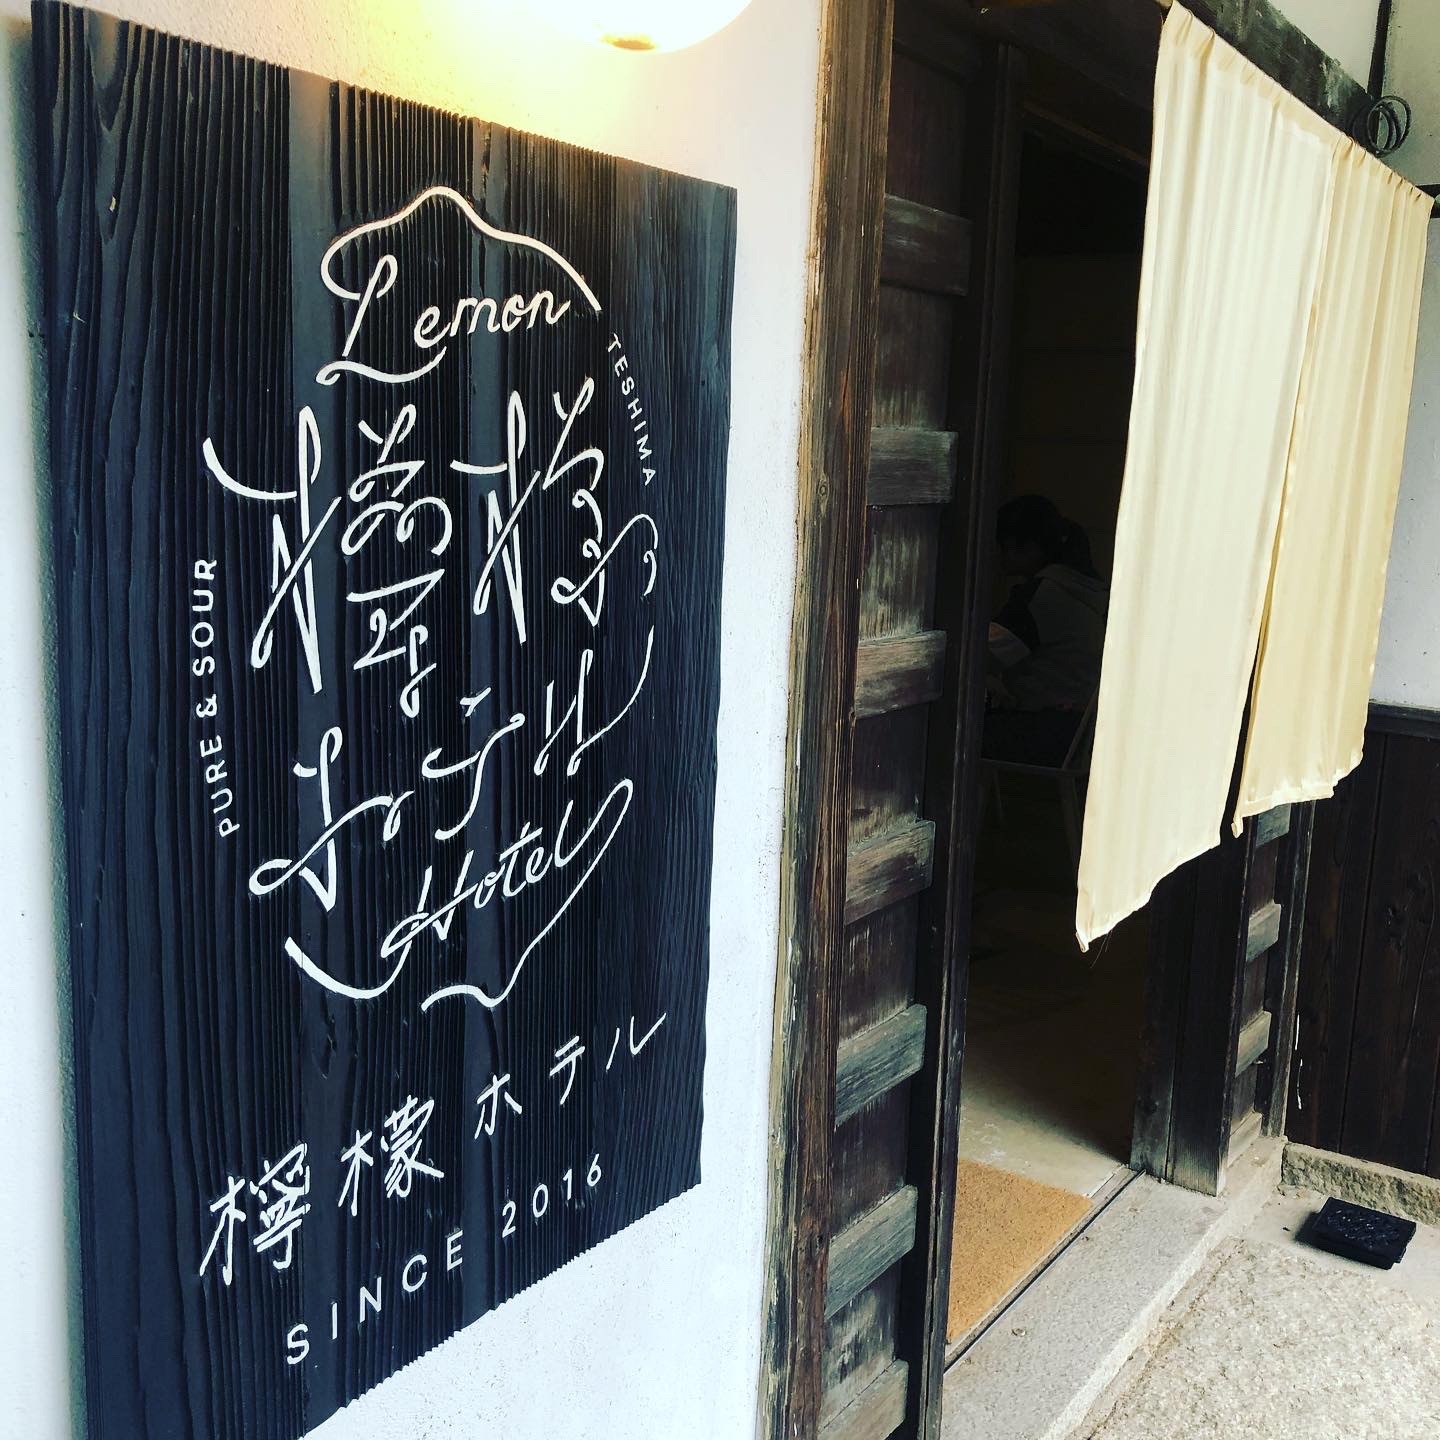 Lemon
TESHIMA
檸檬
ホテル
Hotel
PURE & SOUR
檸檬ホテル
SINCE 2016